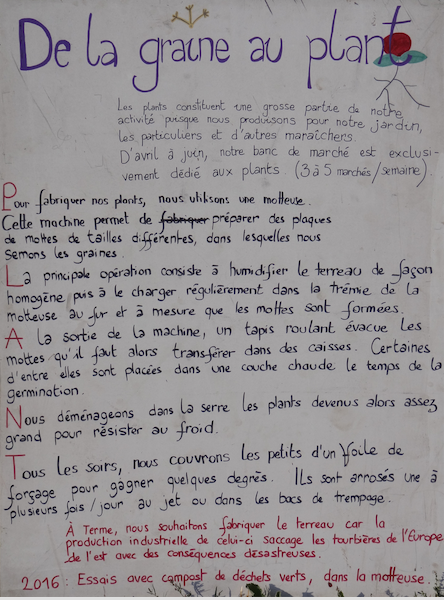 De la graine au plant
Les plants constituent une grosse partie de notre
activité puisque nous produisons pour notre jardin,
les particuliers et d'autres maraîchers.
D'avril à juin, notre banc de marché est exclusi-
vement dédié aux plants. (3 à 5 marchés/semaine).
Pour fabriquer nos plants, nous utilisons une motteuse.
Cette machine permet de fabriquer préparer des plaques
de mottes de tailles différentes, dans lesquelles nous
semons les graines.
La principale opération consiste à humidifier le terreau de façon
homogène puis à le charger régulièrement dans la trémie de la
motteuse au fur et à mesure que les mottes sont formées.
A la sortie de la machine, un tapis roulant évacue les
mottes qu'il faut alors transférer dans des caisses. Certaines
d'entre elles sont placées dans une couche chaude le temps de la
germination.
Nous déménageons dans la serre les plants devenus alors assez
grand pour résister au froid.
Tous les soirs, nous couvrons les petits d'un voile de
forçage pour gagner quelques degrés. Ils sont arrosés une à
plusieurs fois/jour au jet ou dans les bacs de trempage.
À Terme, nous souhaitons fabriquer le terreau car la
production industrielle de celui-ci saccage les tourbières de l'Europe
de l'est avec des conséquences désastreuses.
2016 : Essais avec compost de déchets verts, dans la motteuse.